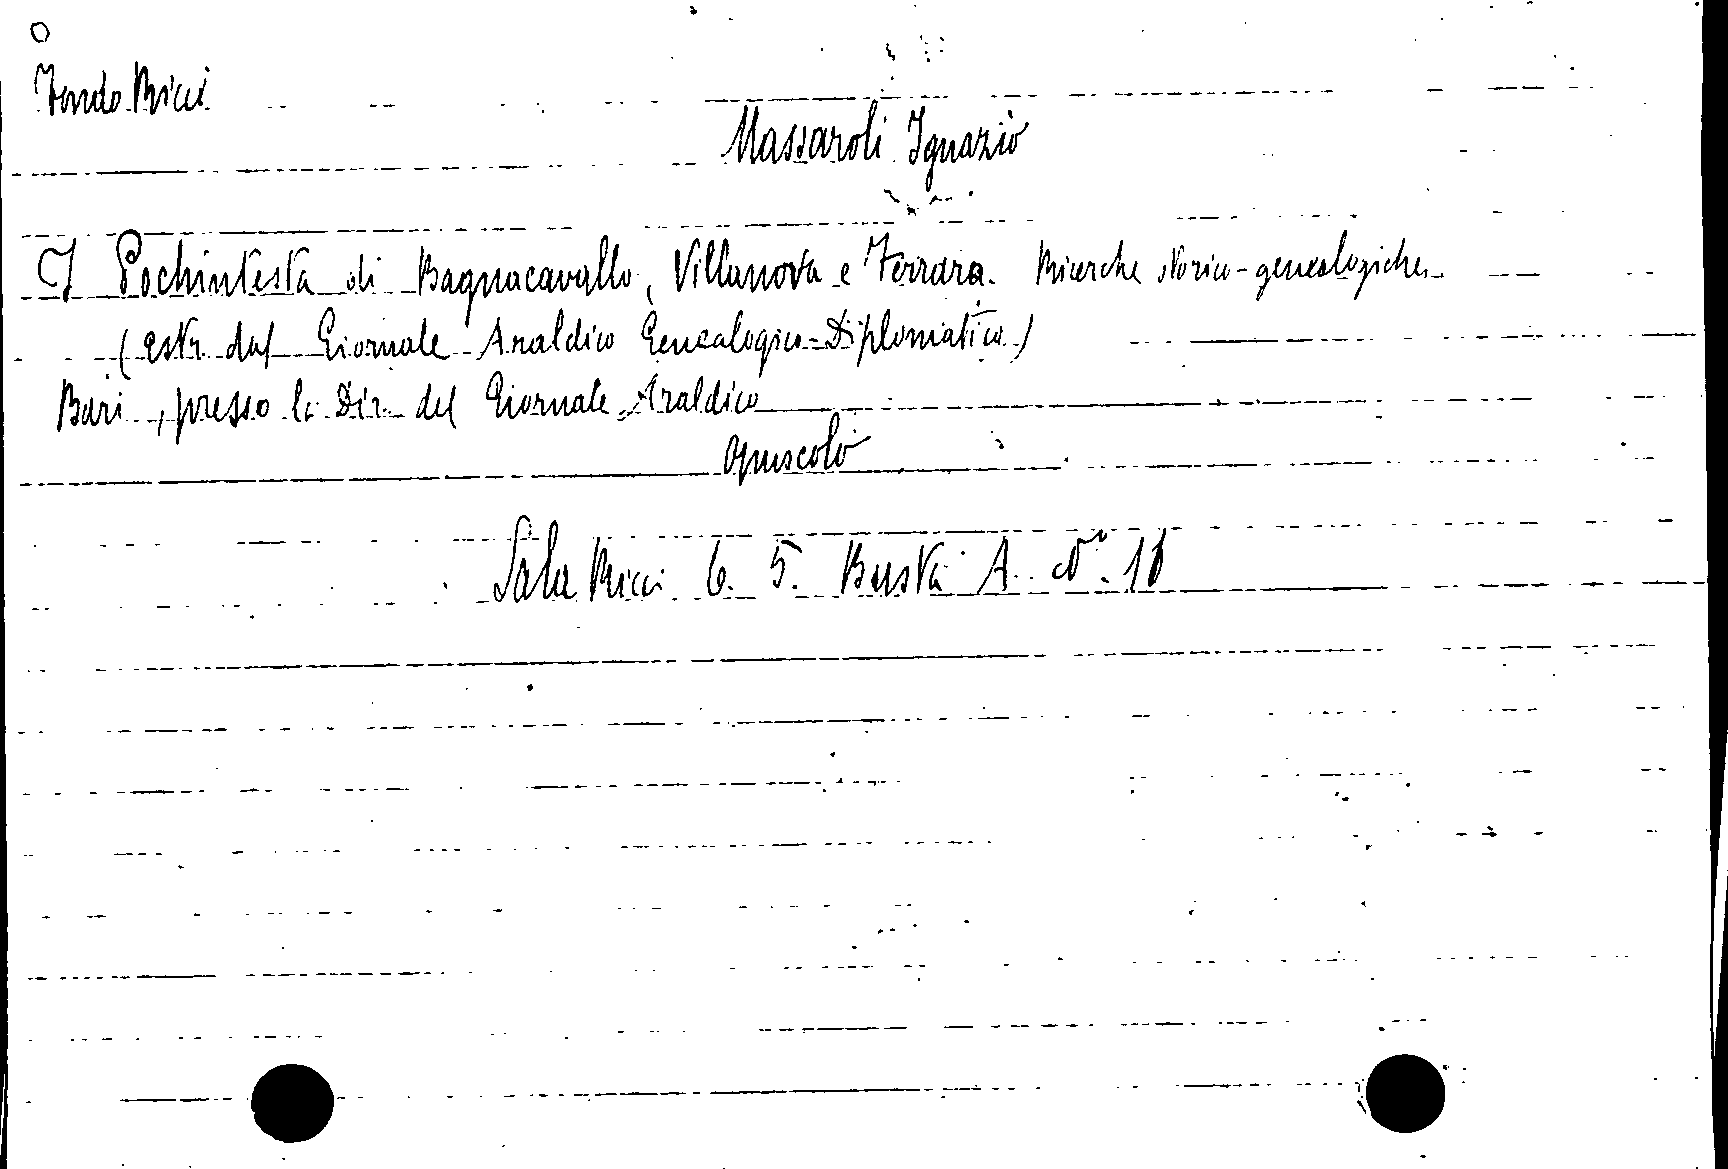 Fondo Ricci
Massaroli Ignazio
I Pochintesta di Bagnacavallo, Villanova e Ferrara. Ricerche storico-genealogiche
(estr. dal Giornale Araldico Genealogico-Diplomatico)
Bari, presso la Dir. del Giornale Araldico
opuscolo
Sala Ricci 6. 5. Busta A. N°.